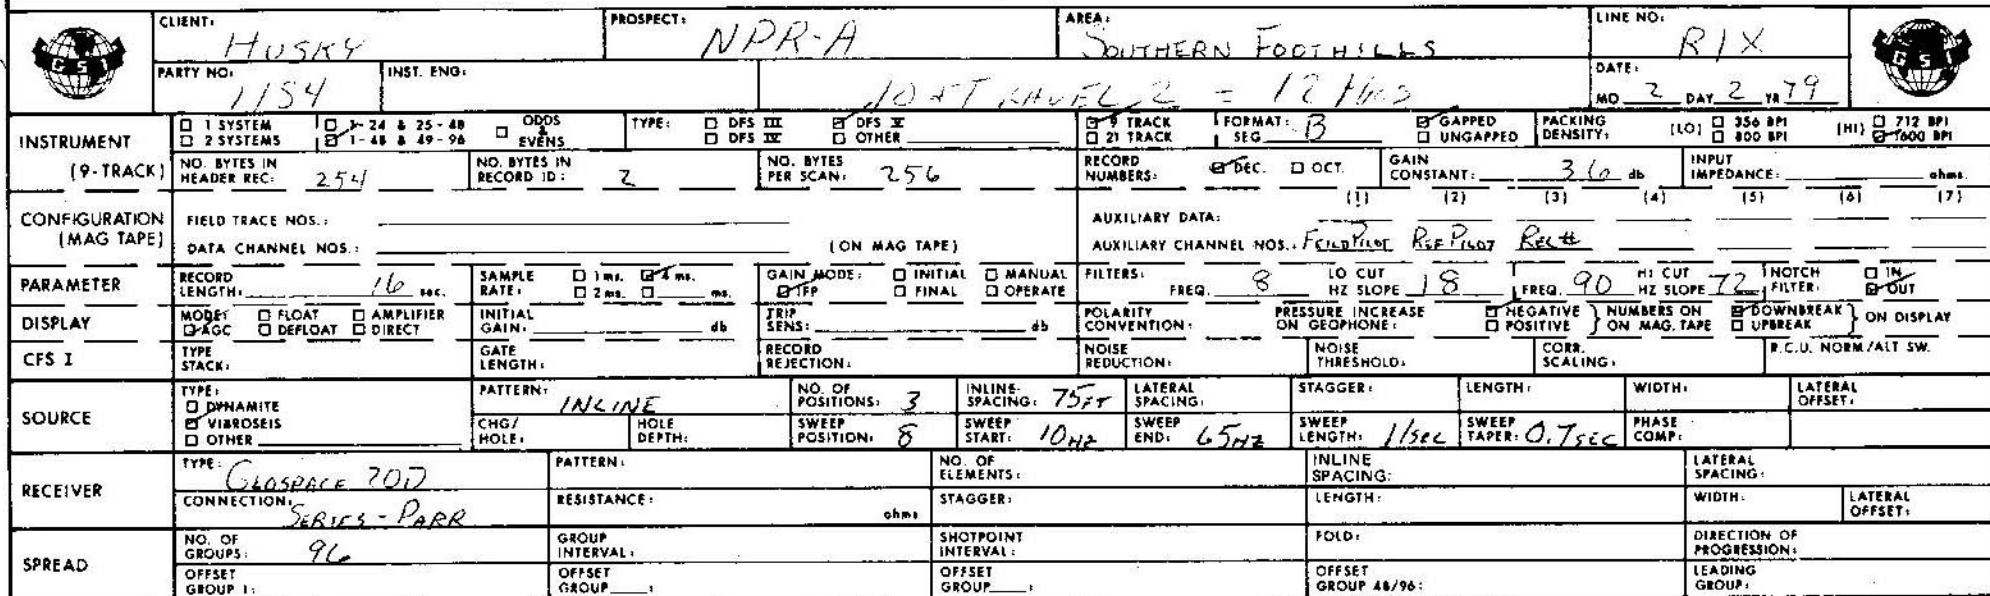 CLIENT: HUSKY PROSPECT: NPR-A AREA: SOUTHERN FOOTHILLS LINE NO: RIX
GSI GSI
PARTY NO: 1154 INST. ENG: 10 TRAVEL 2 = 12 HRS DATE: MO 2 DAY 2 YR 79
INSTRUMENT (9-TRACK)
☐ 1 SYSTEM ☐ 1-24 & 25-48 ☐ ODDS & EVENS TYPE: ☐ DFS III ☑ DFS V ☑ 9 TRACK FORMAT: SEG B ☑ GAPPED PACKING DENSITY: (LO) ☐ 356 BPI (HI) ☐ 712 BPI
☐ 2 SYSTEMS ☑ 1-48 & 49-96 ☐ DFS IV ☐ OTHER ☐ 21 TRACK ☐ UNGAPPED ☐ 800 BPI ☑ 1600 BPI
NO. BYTES IN HEADER REC: 254 NO. BYTES IN RECORD ID: 2 NO. BYTES PER SCAN: 256 RECORD NUMBERS: ☑ DEC. ☐ OCT. GAIN CONSTANT: 36 db INPUT IMPEDANCE: ohms.
CONFIGURATION (MAG TAPE)
(1) (2) (3) (4) (5) (6) (7)
FIELD TRACE NOS.: AUXILIARY DATA:
DATA CHANNEL NOS.: (ON MAG TAPE) AUXILIARY CHANNEL NOS.: FEILD PILOT REF PILOT REC #
PARAMETER
RECORD LENGTH: 16 sec. SAMPLE RATE: ☐ 1 ms. ☑ 4 ms. ☐ 2 ms. ☐ ms. GAIN MODE: ☐ INITIAL ☐ MANUAL ☑ IFP ☐ FINAL ☐ OPERATE FILTERS: FREQ. 8 LO CUT HZ SLOPE 18 FREQ. 90 HI CUT HZ SLOPE 72 NOTCH FILTER: ☐ IN ☑ OUT
DISPLAY
MODE: ☐ FLOAT ☐ AMPLIFIER ☑ AGC ☐ DEFLOAT ☐ DIRECT INITIAL GAIN: db TRIP SENS: db POLARITY CONVENTION: PRESSURE INCREASE ON GEOPHONE: ☑ NEGATIVE ☐ POSITIVE } NUMBERS ON ON MAG. TAPE ☑ DOWNBREAK ☐ UPBREAK } ON DISPLAY
CFS I TYPE STACK: GATE LENGTH: RECORD REJECTION: NOISE REDUCTION: NOISE THRESHOLD: CORR. SCALING: R.C.U. NORM/ALT SW.
SOURCE
TYPE: ☐ DYNAMITE ☑ VIBROSEIS ☐ OTHER
PATTERN: INLINE NO. OF POSITIONS: 3 INLINE SPACING: 75FT LATERAL SPACING: STAGGER: LENGTH: WIDTH: LATERAL OFFSET:
CHG/HOLE: HOLE DEPTH: SWEEP POSITION: 8 SWEEP START: 10HZ SWEEP END: 65HZ SWEEP LENGTH: 11SEC SWEEP TAPER: 0.7SEC PHASE COMP:
RECEIVER
TYPE: GEOSPACE 20D PATTERN: NO. OF ELEMENTS: INLINE SPACING: LATERAL SPACING:
CONNECTION: SERIES-PARR RESISTANCE: ohms STAGGER: LENGTH: WIDTH: LATERAL OFFSET:
SPREAD
NO. OF GROUPS: 96 GROUP INTERVAL: SHOTPOINT INTERVAL: FOLD: DIRECTION OF PROGRESSION:
OFFSET GROUP 1: OFFSET GROUP : OFFSET GROUP : OFFSET GROUP 48/96: LEADING GROUP: